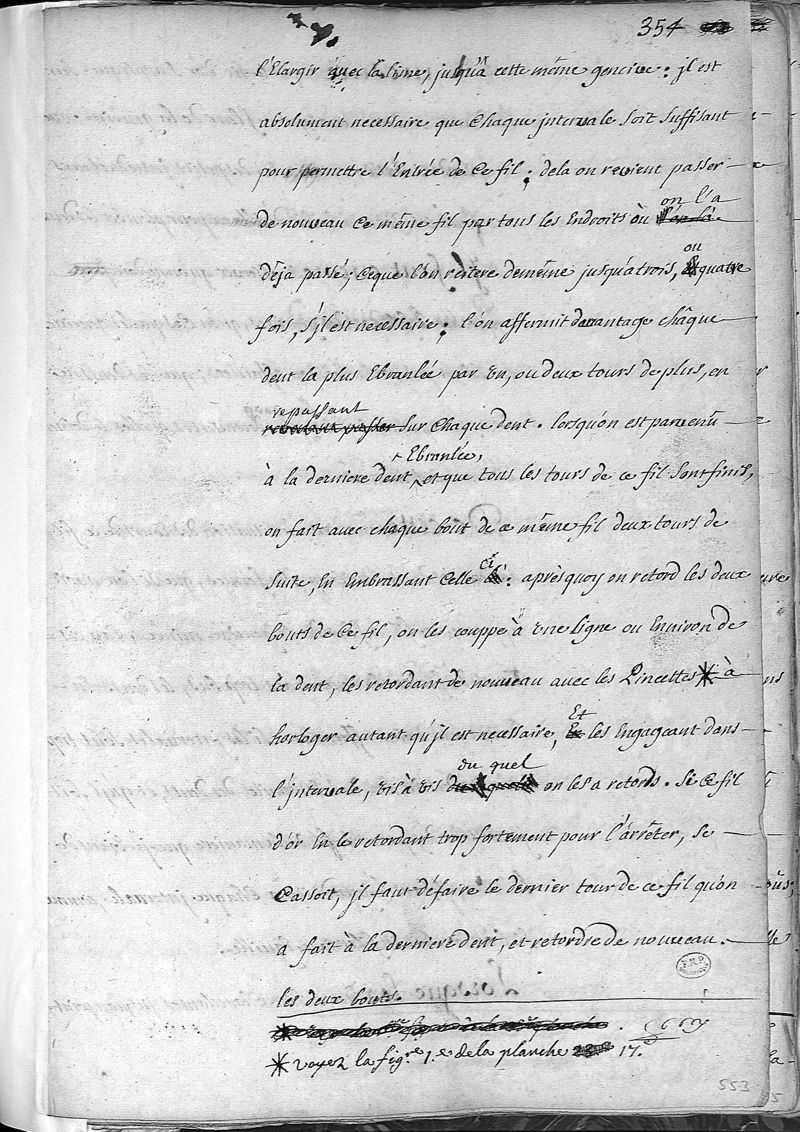 354
l'Elargir avec la lime, jusqu'à cette même gencive : jl est
absolument necessaire que Chaque jntervale soit suffisant
pour permettre l'Entrée de Ce fil ; dela on revient passer
on l'a
de nouveau Ce même fil par tous les Endroits où
ou
déja passé ; Ceque l'on réitere demême jusqu'atrois, quatre
fois, s'jl est necessaire ; l'on affermit davantage châque
dent la plus Ebranlée par un, ou deux tours de plus, en
repassant
sur Chaque dent . lorsqu'on est parvenû
Ebranlée,
à la derniere dent, et que tous les tours de ce fil sont finis,
on fait avec chaque bout de ce même fil deux tours de
Ci
suite, En Embrassant Celle : après quoy on retord les deux
bouts de Ce fil, on les couppe à une ligne ou Environ de
la dent, les retordant de nouveau avec les Pincettes * à
Et
horloger autant qu'jl est necessaire, les Engageant dans
du quel
l'jntervale, vis à vis on les a retords . Si Ce fil
d'or En le retordant trop fortement pour l'arrêter, se
Cassoit, jl faut défaire le dernier tour de ce fil qu'on
a fait à la derniere dent, et retordre de nouveau
les deux bouts.
* voyez la fig.re 1.e de la planche 17.e
553